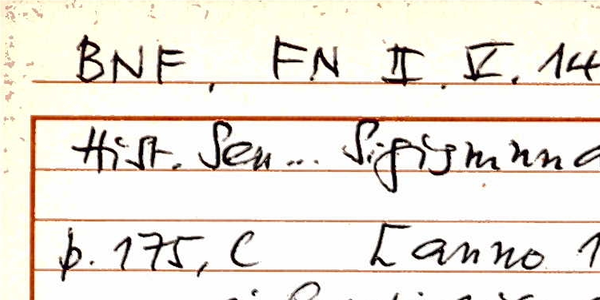 BNF, FN II. V. 14
Hist. Sen... Sigismund
p. 175, C [anno 1